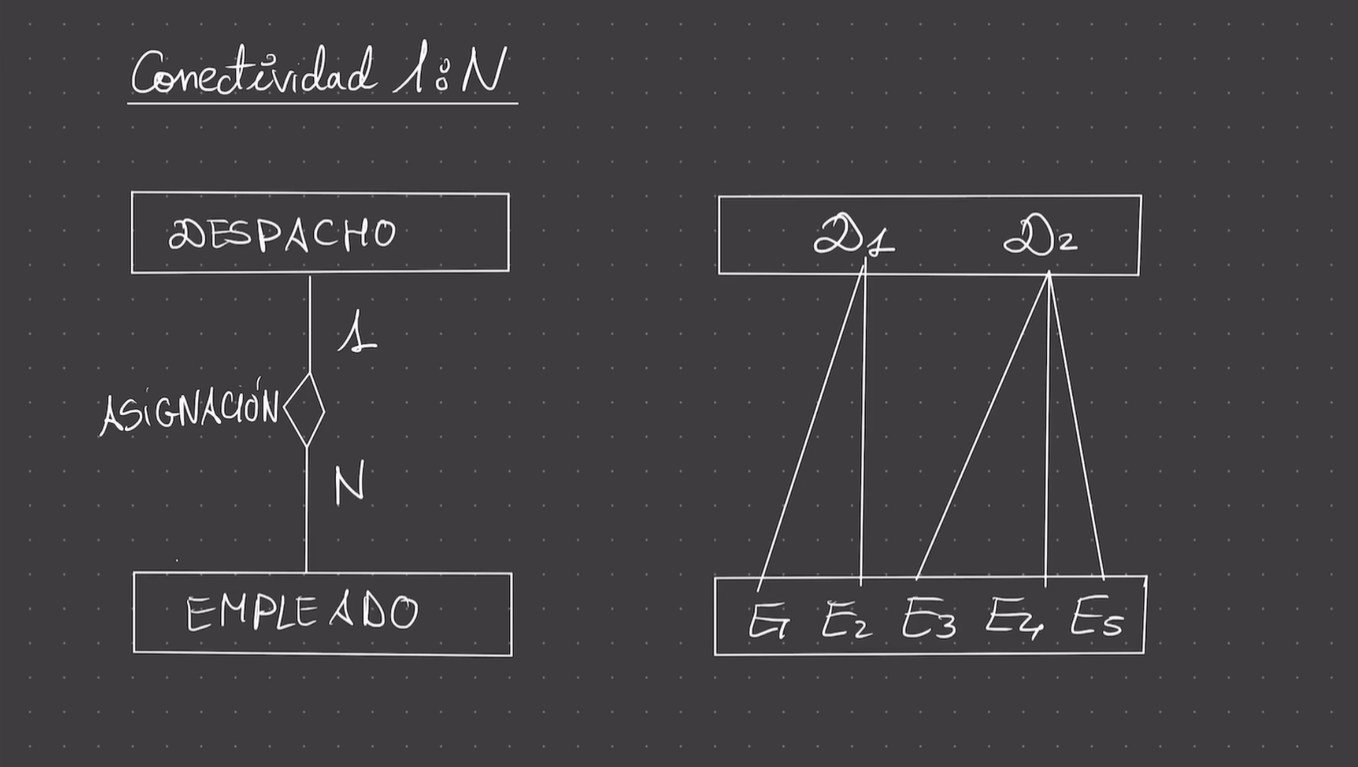 Conectividad 1:N
DESPACHO
1
ASIGNACIÓN
N
EMPLEADO
D1 D2
E1 E2 E3 E4 E5